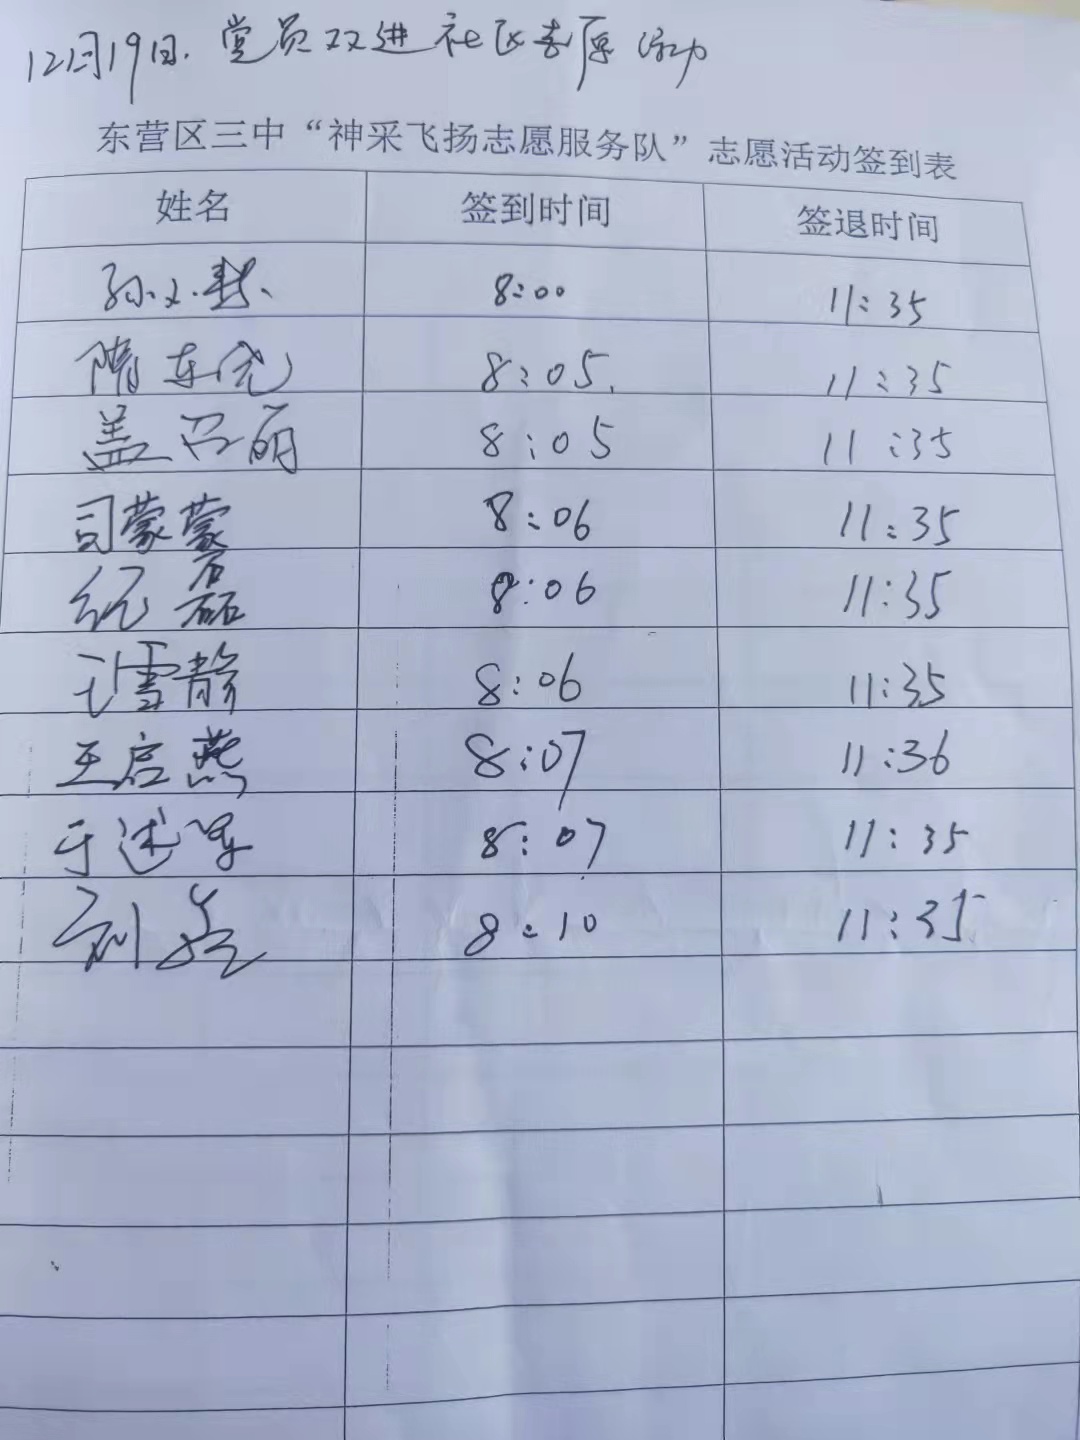 12月19日. 党员双进社区志愿活动
东营区三中“神采飞扬志愿服务队”志愿活动签到表
姓名 签到时间 签退时间
孙文 8:00 11:35
隋东 8:05. 11:35
盖召丽 8:05 11:35
司蒙蒙 8:06 11:35
纪磊 8:06 11:35
雪静 8:06 11:35
王启燕 8:07 11:36
于述 8:07 11:35
刘 8:10 11:35